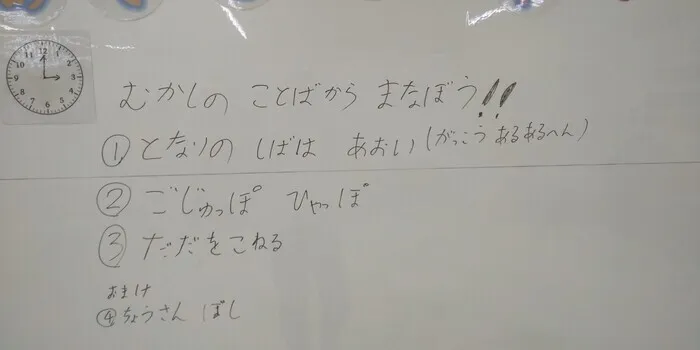 12 1 2 3 4 5 6 7 8 9 10 11
むかしの ことばから まなぼう!!
① となりの しばは あおい (がっこう あるあるへん)
② ごじゅっぽ ひゃっぽ
③ だだをこねる
おまけ
④ ちょうさん ぼし